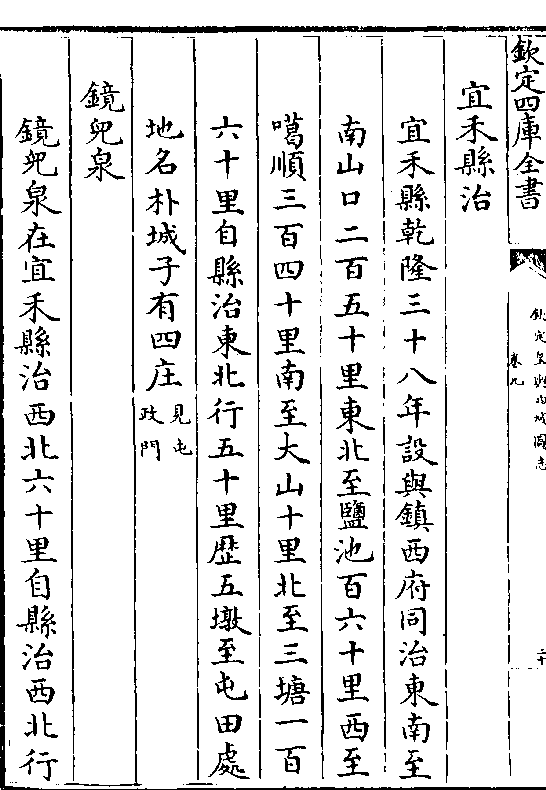 欽定四庫全書
欽定皇輿西域圖志
卷九
二十
宜禾縣治
宜禾縣乾隆三十八年設與鎮西府同治東南至
南山口二百五十里東北至鹽池百六十里西至
噶順三百四十里南至大山十里北至三塘一百
六十里自縣治東北行五十里歷五墩至屯田處
地名朴城子有四庄見屯政門
鏡兒泉
鏡兒泉在宜禾縣治西北六十里自縣治西北行